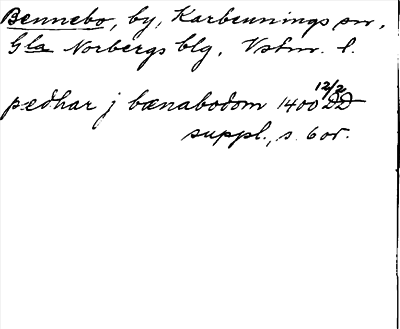 Bennebo, by, Karbennings sn,
Gla Norbergs blg, Vstm. l.
pedhar j bænabodom 1400 12/2 DD
suppl., s. 60r.